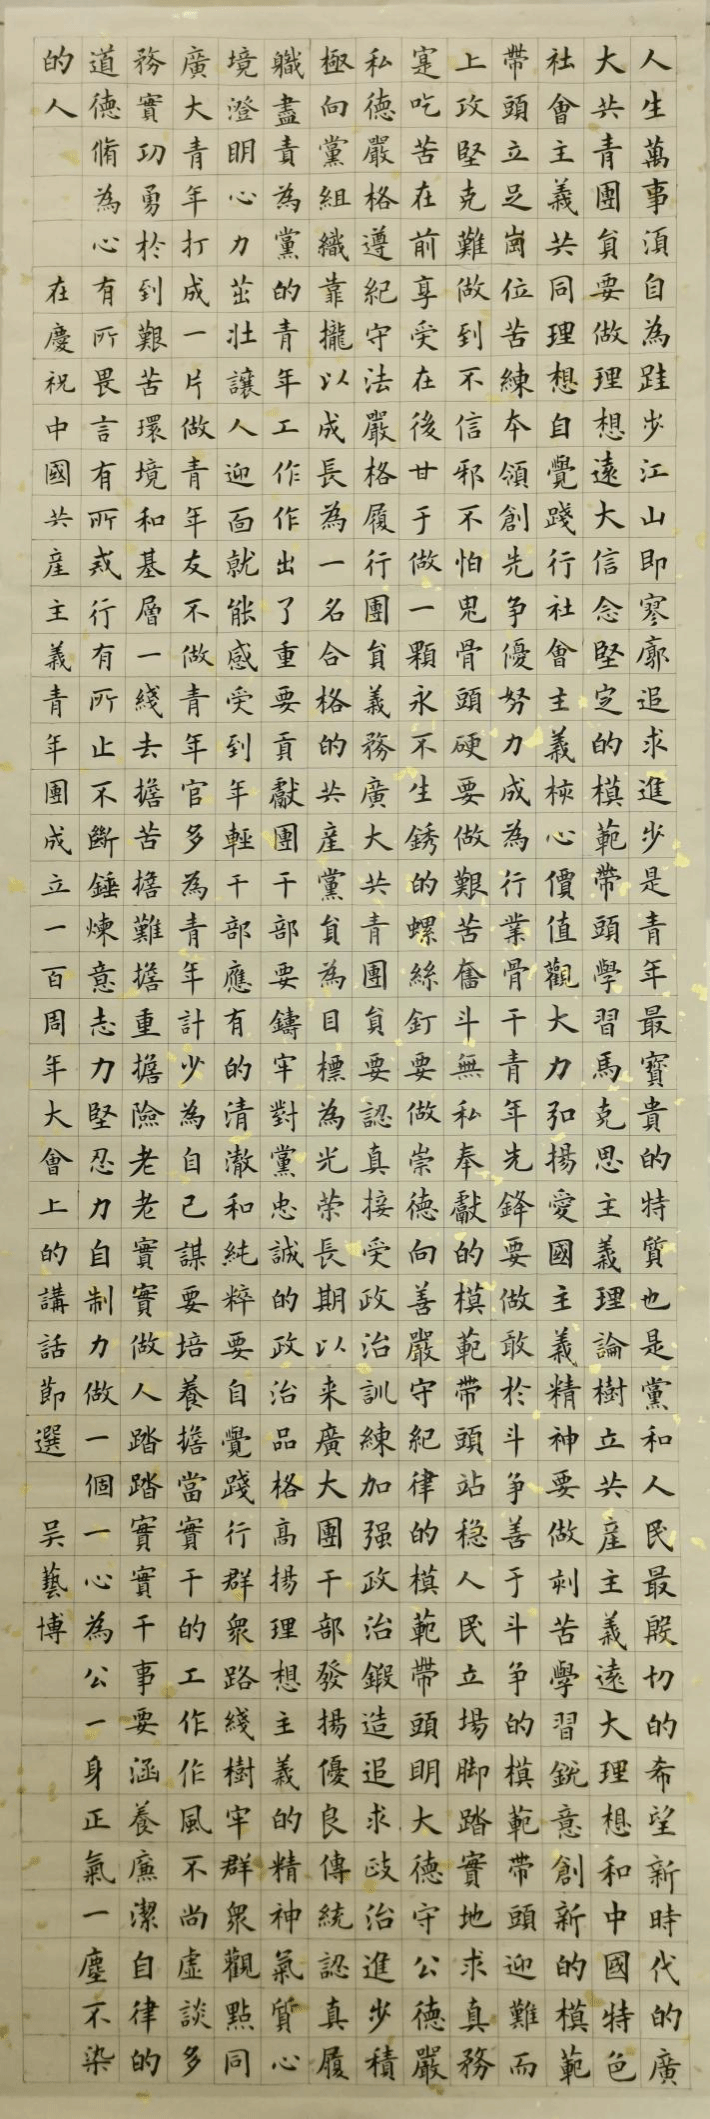 人生萬事須自為跬步江山即寥廓追求進步是青年最寶貴的特質也是黨和人民最殷切的希望新時代的廣
大共青團員要做理想遠大信念堅定的模範帶頭學習馬克思主義理論樹立共産主義遠大理想和中國特色
社會主義共同理想自覺踐行社會主義核心價值觀大力弘揚愛國主義精神要做刻苦學習銳意創新的模範
帶頭立足崗位苦練本領創先争優努力成為行業骨干青年先鋒要做敢於斗争善于斗争的模範帶頭迎難而
上攻堅克難做到不信邪不怕鬼骨頭硬要做艱苦奮斗無私奉獻的模範帶頭站穩人民立場脚踏實地求真務
寔吃苦在前享受在後甘于做一顆永不生銹的螺絲釘要做崇德向善嚴守紀律的模範帶頭明大德守公德嚴
私德嚴格遵紀守法嚴格履行團員義務廣大共青團員要認真接受政治訓練加强政治鍛造追求政治進步積
極向黨組織靠攏以成長為一名合格的共産黨員為目標為光荣長期以来廣大團干部發揚優良傳統認真履
職盡責為黨的青年工作作出了重要貢獻團干部要鑄牢對黨忠誠的政治品格高揚理想主義的精神氣質心
境澄明心力茁壯讓人迎面就能感受到年輕干部應有的清澈和純粹要自覺踐行群衆路綫樹牢群衆觀點同
廣大青年打成一片做青年友不做青年官多為青年計少為自己謀要培養擔當實干的工作作風不尚虛談多
務實功勇於到艱苦環境和基層一綫去擔苦擔難擔重擔險老老實實做人踏踏實實干事要涵養廉潔自律的
道德脩為心有所畏言有所戒行有所止不斷錘煉意志力堅忍力自制力做一個一心為公一身正氣一塵不染
的人　在慶祝中國共産主義青年團成立一百周年大會上的講話節選　吴藝博